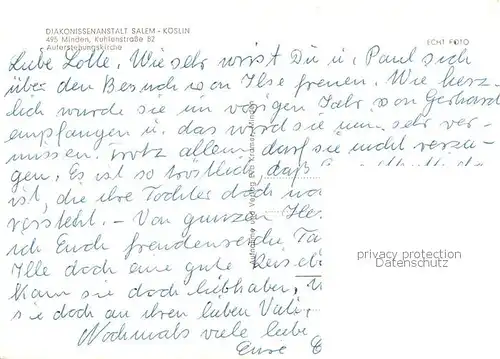 DIAKONISSENANSTALT SALEM - KÖSLIN
495 Minden, Kuhlenstraße 82
Auferstehungskirche
ECHT FOTO
Liebe Lotte, Wie sehr wirst Du u. Paul sich
über den Besuch von Ilse freuen. Wie herz-
lich wurde sie im vorigen Jahr von Gerhard
empfangen u. das wird sie nun sehr ver-
missen. Trotz allem darf sie nicht verza-
gen. Es ist so tröstlich, daß
ist, die ihre Tochter doch
versteht. – Von ganzem
ich Euch freudenreiche Ta
Ilse doch eine gute
Kann sie doch liebhaben,
sie doch an ihren lieben Vati,
Nochmals viele liebe
Eure
privacy protection
Datenschutz